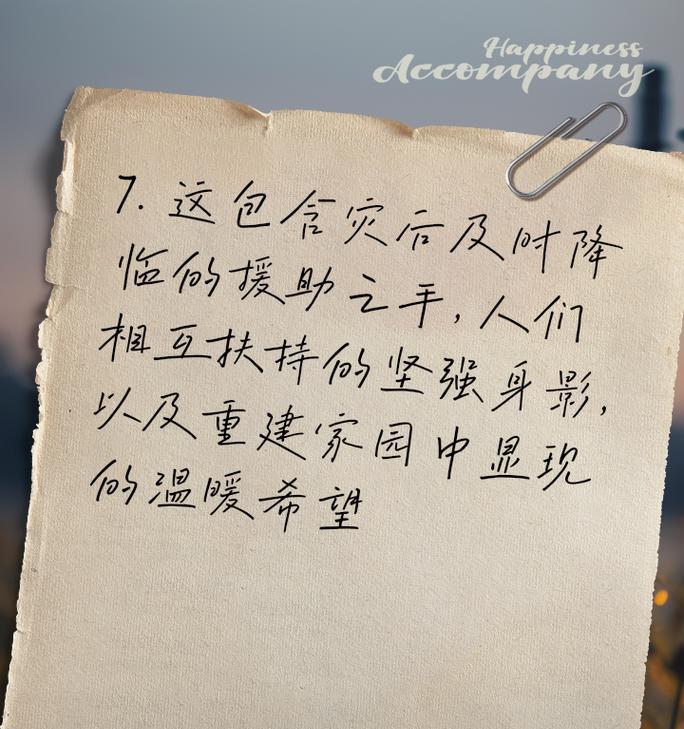 Happiness
Accompany
7. 这包含灾后及时降
临的援助之手,人们
相互扶持的坚强身影,
以及重建家园中显现
的温暖希望